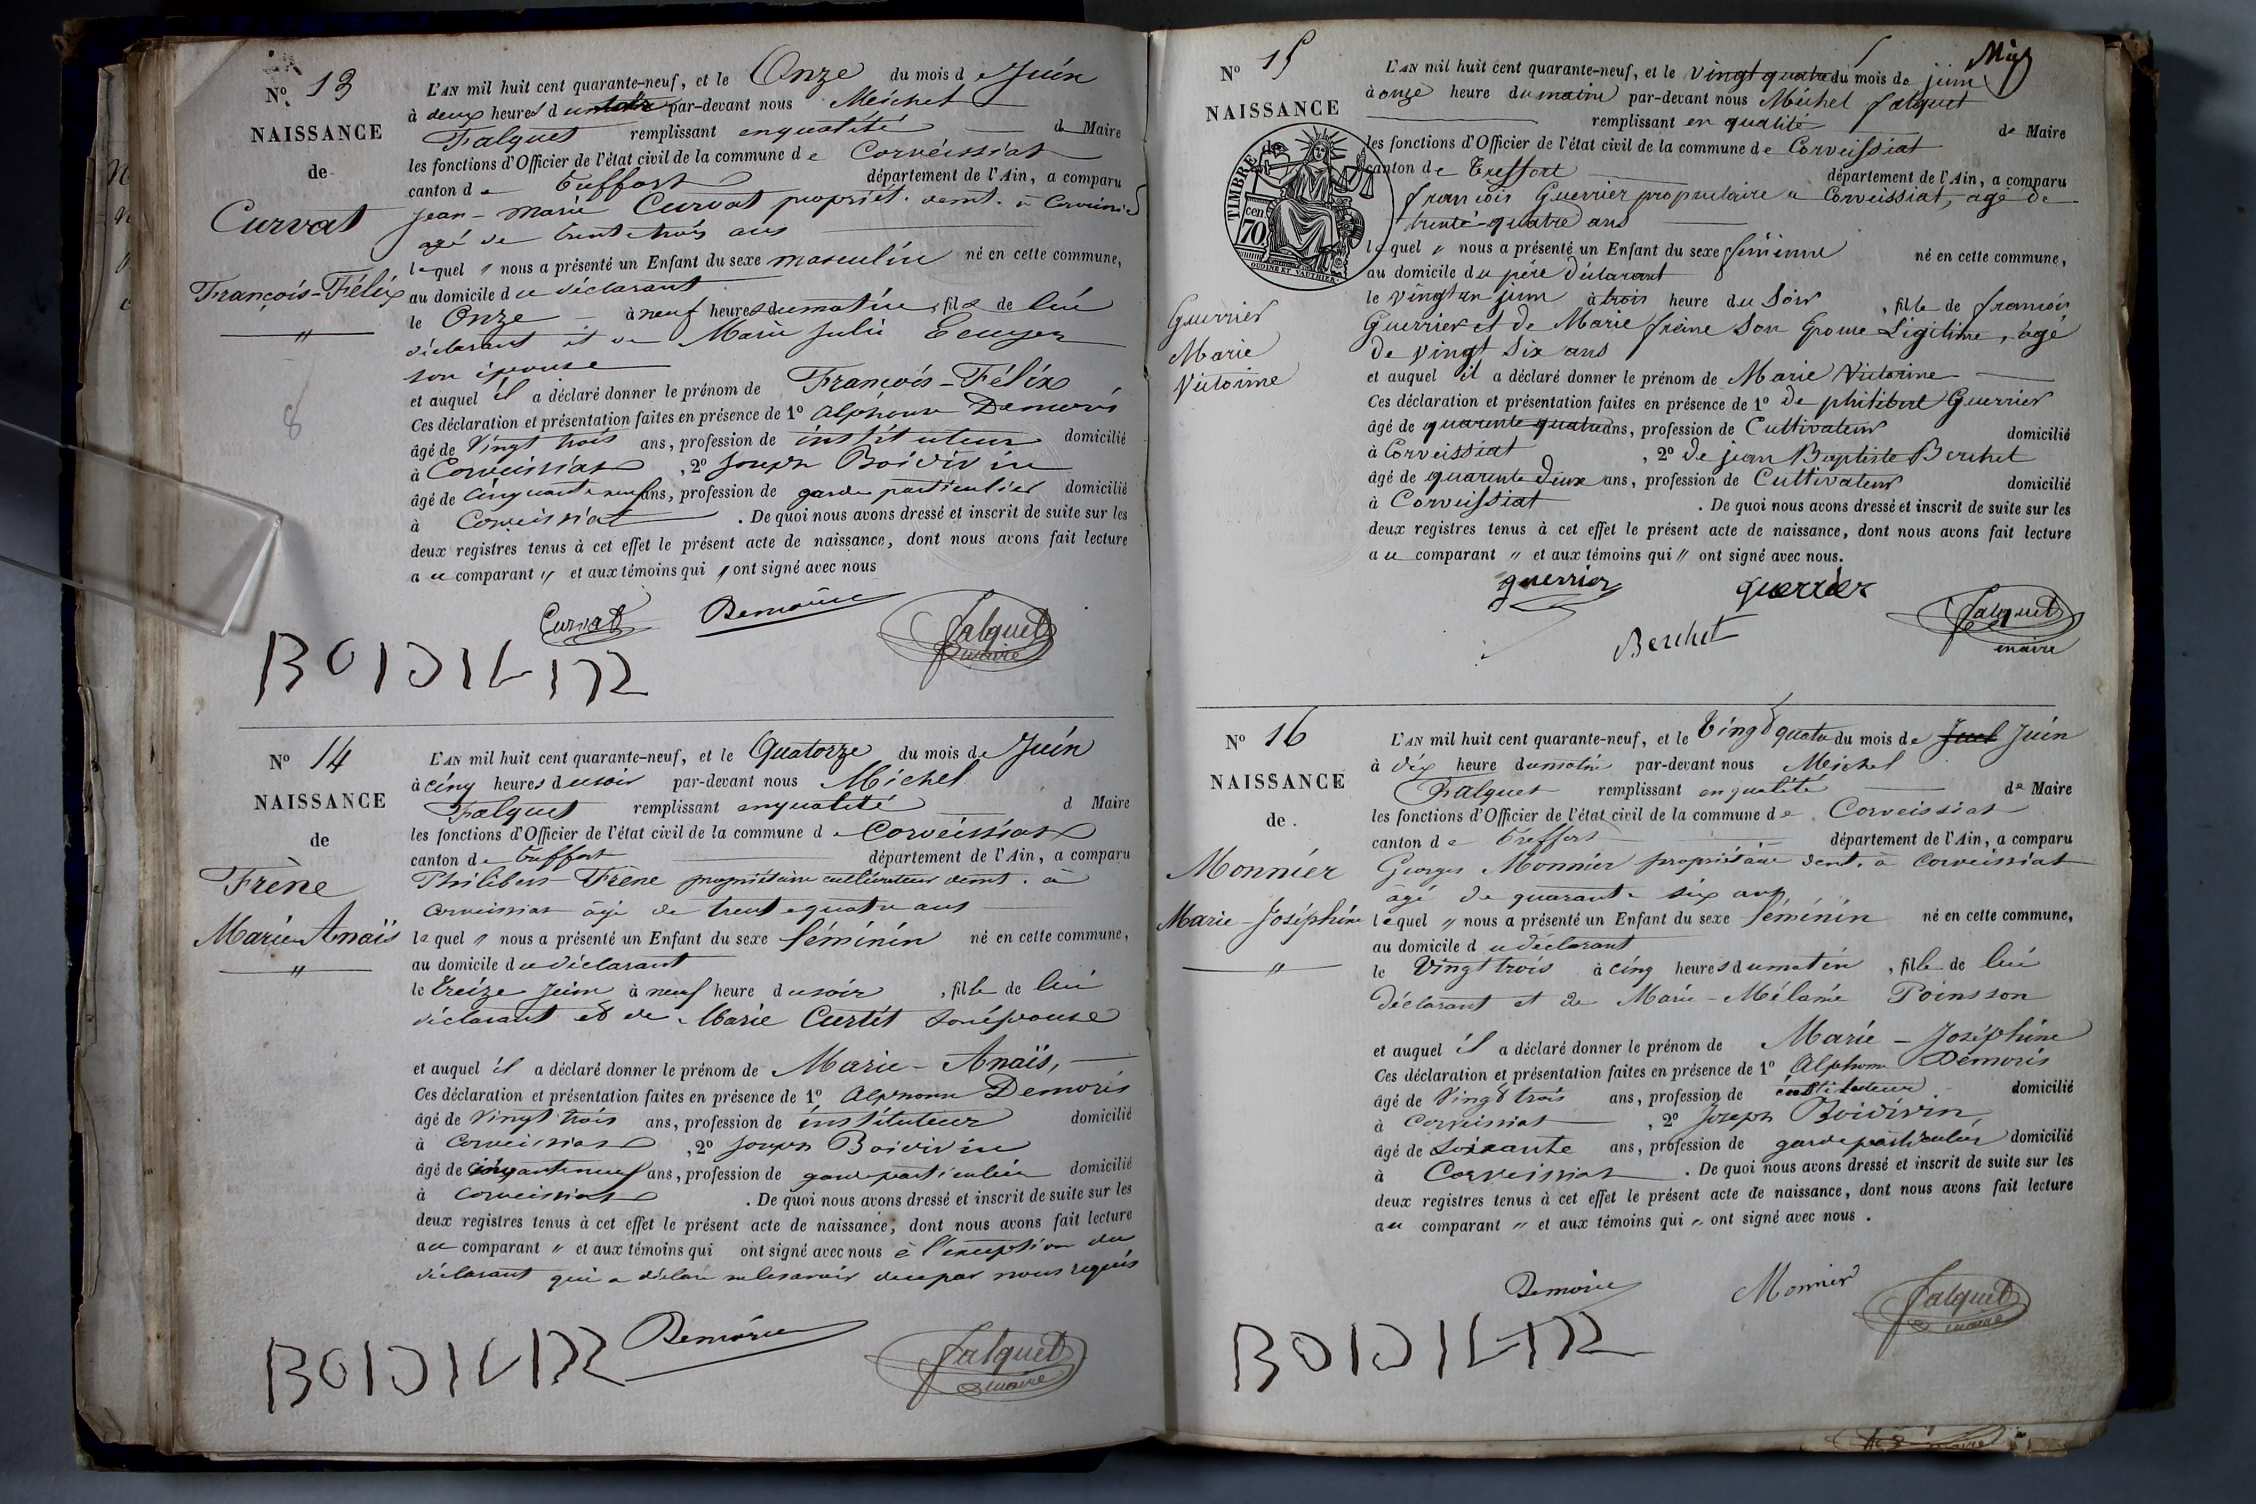 Nº 13
NAISSANCE
de
Curvat
François-Félix
"
8
L'AN mil huit cent quarante-neuf, et le Onze du mois de Juin
à deux heures du par-devant nous Michel
Falquet remplissant en qualité d Maire
les fonctions d'Officier de l'état civil de la commune de Corveissiat
canton de Treffort département de l'Ain, a comparu
Jean-Marie Curvat propriét. demt. à Corveissiat
agé de trente trois ans
lequel " nous a présenté un Enfant du sexe masculin né en cette commune,
au domicile du déclarant
le Onze à neuf heures du matin, fils de lui
déclarant et de Marie Julie Ecuyer
son épouse
et auquel il a déclaré donner le prénom de François-Félix
Ces déclaration et présentation faites en présence de 1º Alphonse Demoris
âgé de Vingt trois ans, profession de instituteur domicilié
à Corveissiat, 2º Joseph Boidivin
âgé de cinquante neuf ans, profession de garde particulier domicilié
à Corveissiat. De quoi nous avons dressé et inscrit de suite sur les
deux registres tenus à cet effet le présent acte de naissance, dont nous avons fait lecture
au comparant " et aux témoins qui " ont signé avec nous
Curvat Demoris Falquet
maire
BOIDIVIN
Nº 14
NAISSANCE
de
Frène
Marie Anaïs
"
L'AN mil huit cent quarante-neuf, et le Quatorze du mois de Juin
à cinq heures du soir par-devant nous Michel
Falquet remplissant en qualité d Maire
les fonctions d'Officier de l'état civil de la commune de Corveissiat
canton de Treffort département de l'Ain, a comparu
Philibert Frène propriétaire cultivateur demt. à
Corveissiat âgé de trente quatre ans
lequel " nous a présenté un Enfant du sexe féminin né en cette commune,
au domicile du déclarant
le treize juin à neuf heure du soir, fille de lui
déclarant et de Marie Curtit son épouse
et auquel il a déclaré donner le prénom de Marie-Anaïs,
Ces déclaration et présentation faites en présence de 1º Alphonse Demoris
âgé de Vingt trois ans, profession de instituteur domicilié
à Corveissiat, 2º Joseph Boidivin
âgé de cinquante neuf ans, profession de garde particulier domicilié
à Corveissiat. De quoi nous avons dressé et inscrit de suite sur les
deux registres tenus à cet effet le présent acte de naissance, dont nous avons fait lecture
au comparant " et aux témoins qui ont signé avec nous à l'exception du
déclarant qui a déclaré ne le savoir de ce par nous requis
BOIDIVIN Demoris Falquet
maire
Nº 15
NAISSANCE
TIMBRE
70 cen
OUDINE ET VAUTHIER
Guerrier
Marie
Victorine
L'AN mil huit cent quarante-neuf, et le vingt quatre du mois de juin
à onze heure du matin par-devant nous Michel falquet
remplissant en qualité de Maire
les fonctions d'Officier de l'état civil de la commune de Corveissiat
canton de Treffort département de l'Ain, a comparu
françois Guerrier propriétaire a Corveissiat, agé de
trente-quatre ans
lequel " nous a présenté un Enfant du sexe féminin né en cette commune,
au domicile du père déclarant
le vingt un juin à trois heure du soir, fille de françois
Guerrier et de Marie frène son épouse Légitime, agé
de vingt six ans
et auquel il a déclaré donner le prénom de Marie Victorine
Ces déclaration et présentation faites en présence de 1º de philibert Guerrier
âgé de quarente quatre ans, profession de Cultivateur domicilié
à Corveissiat, 2º de jean Baptiste Berchet
âgé de quarente deux ans, profession de Cultivateur domicilié
à Corveissiat. De quoi nous avons dressé et inscrit de suite sur les
deux registres tenus à cet effet le présent acte de naissance, dont nous avons fait lecture
au comparant " et aux témoins qui " ont signé avec nous.
guerrier guerrier
Berchet Falquet
maire
Nº 16
NAISSANCE
de
Monnier
Marie-Joséphine
"
L'AN mil huit cent quarante-neuf, et le Vingt quatre du mois de Juin
à dix heure du matin par-devant nous Michel
Falquet remplissant en qualité de Maire
les fonctions d'Officier de l'état civil de la commune de Corveissiat
canton de Treffort département de l'Ain, a comparu
Georges Monnier propriétaire demt. à Corveissiat
âgé de quarante six ans
lequel " nous a présenté un Enfant du sexe féminin né en cette commune,
au domicile du déclarant
le Vingt trois à cinq heures du matin, fille de lui
déclarant et de Marie-Mélanie Poinsson
et auquel il a déclaré donner le prénom de Marie-Joséphine
Ces déclaration et présentation faites en présence de 1º Alphonse Démoris
âgé de Vingt trois ans, profession de instituteur domicilié
à Corveissiat, 2º Joseph Boidivin
âgé de Soixante ans, profession de garde particulier domicilié
à Corveissiat. De quoi nous avons dressé et inscrit de suite sur les
deux registres tenus à cet effet le présent acte de naissance, dont nous avons fait lecture
au comparant " et aux témoins qui " ont signé avec nous.
Demoris Monnier Falquet
maire
BOIDIVIN